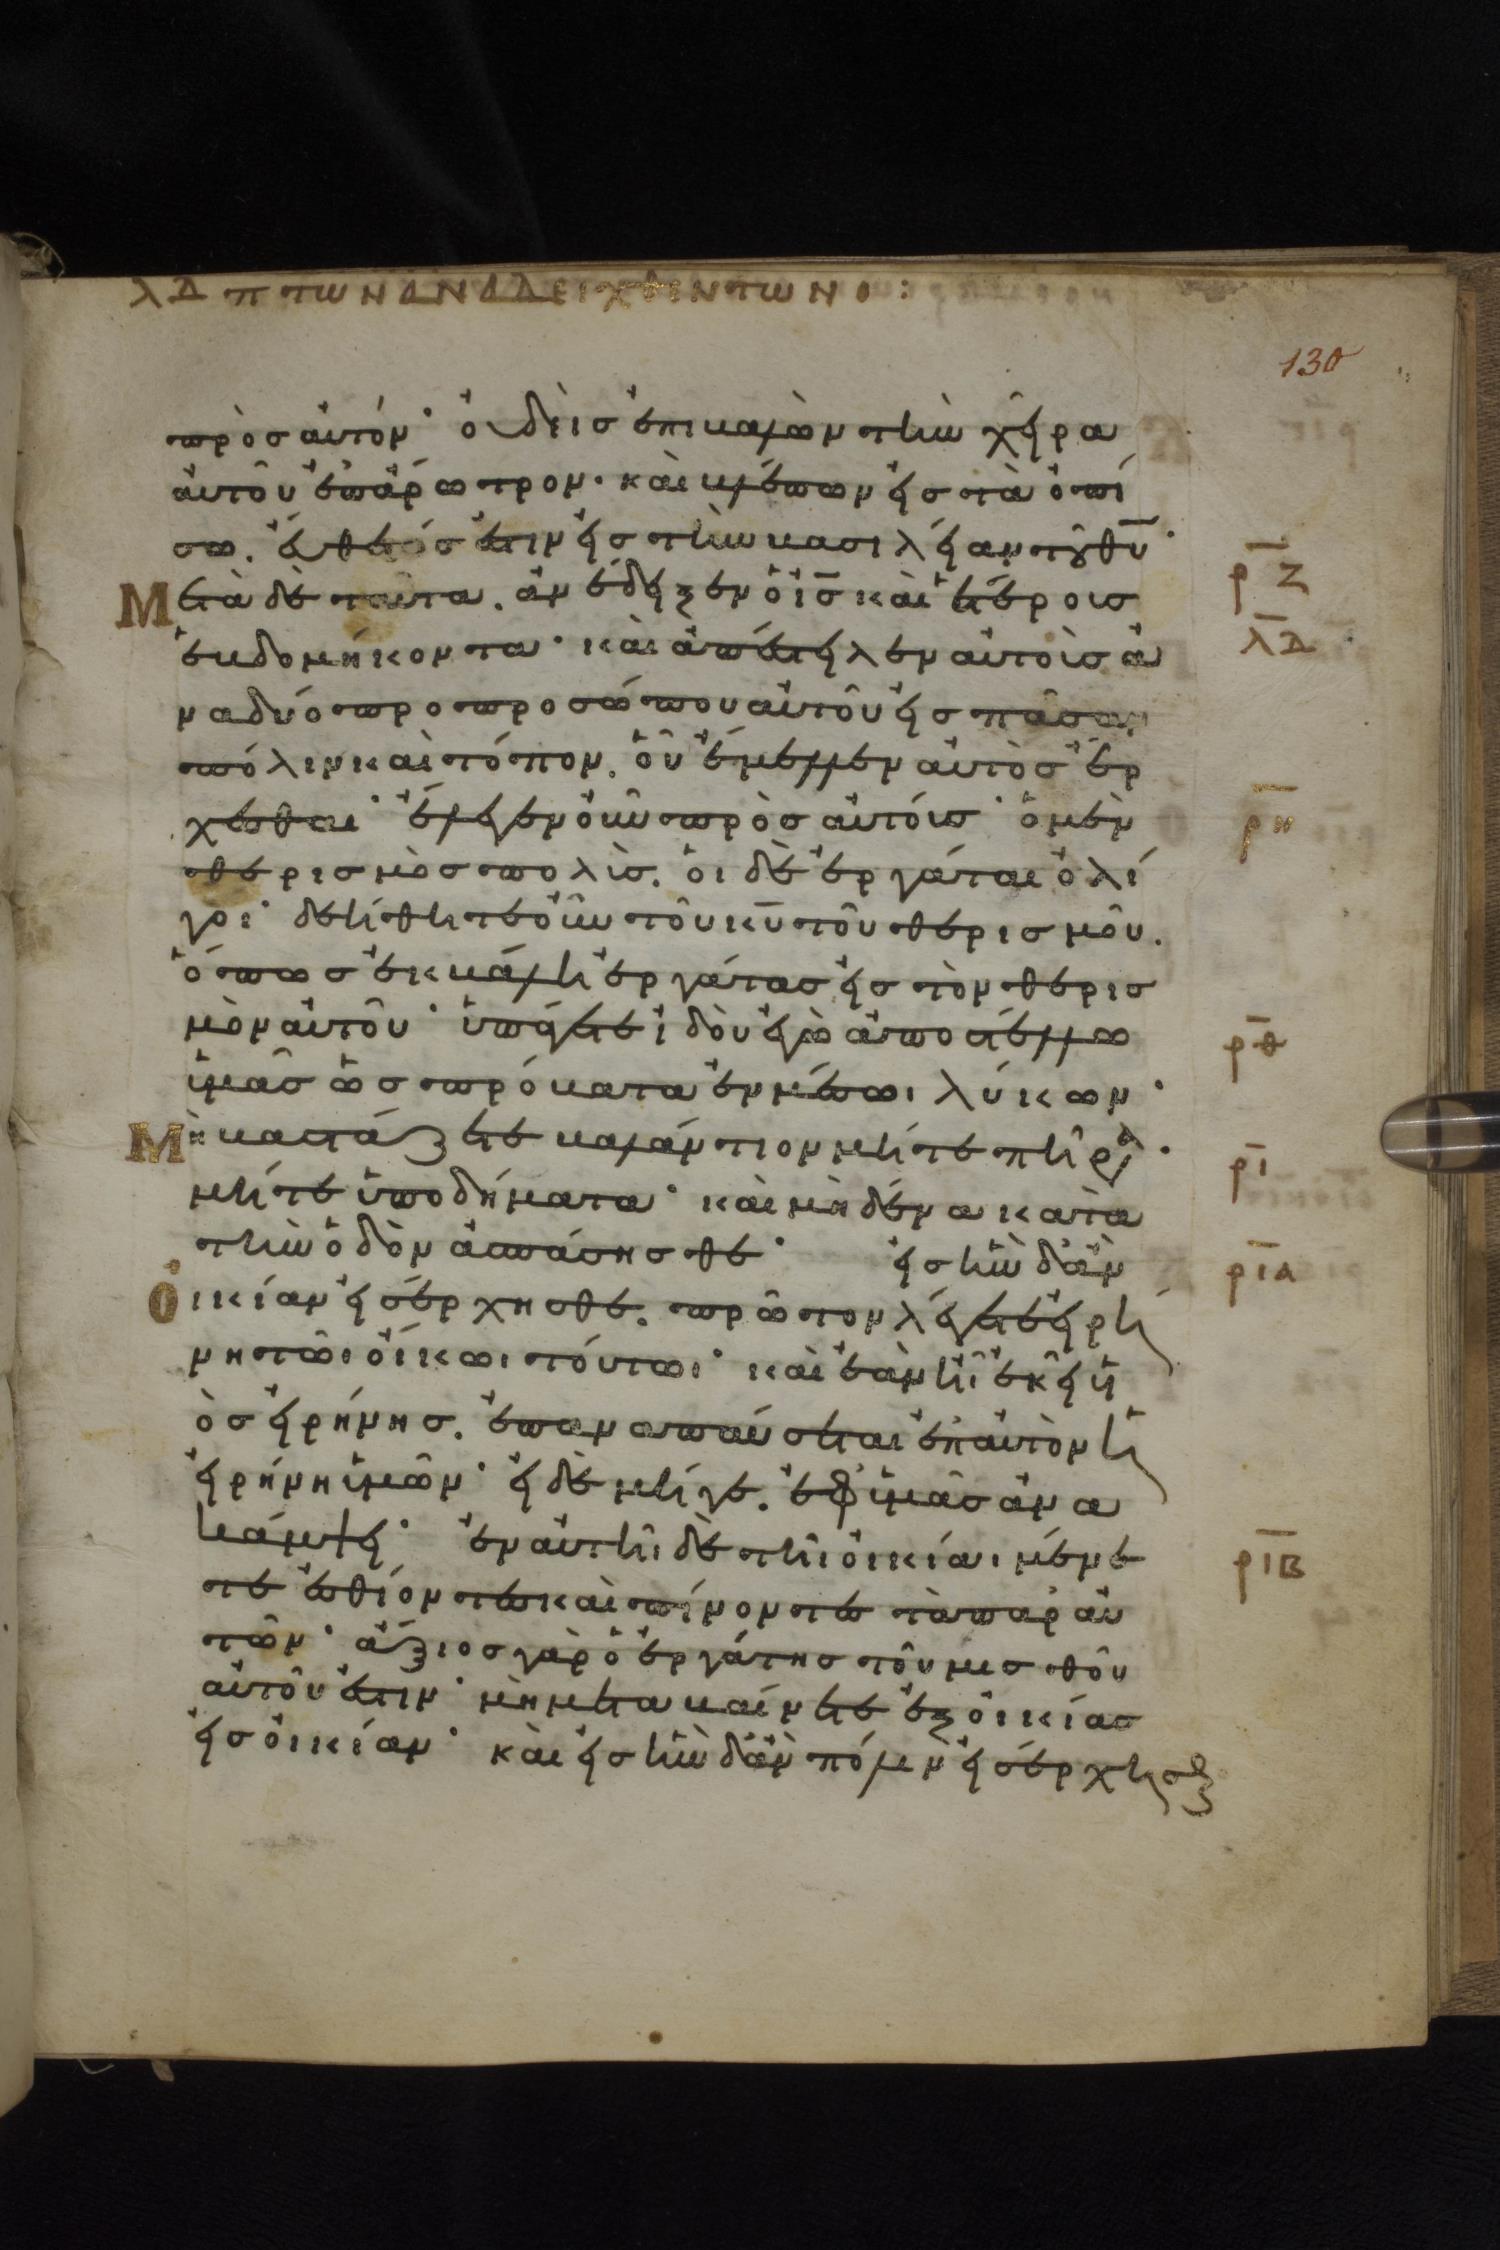 λδ π των αναδειχθεντων ο :
130
πρὸσ αὐτόν· ὀυδεὶσ ἐπιβαλὼν τὴν χεῖρα
ἀυτοῦ ἐπ' ἄροτρον· καὶ βλέπων εἰσ τὰ ὀπί
σω. ἔυθετόσ ἐστιν εἰσ τὴν βασιλείαν τοῦ θυ̅·
ρ̅ζ
Μετὰ δὲ ταῦτα. ἀνέδειξεν ὁ ισ̅ καὶ ἑτέρουσ
λδ
ἑβδομήκοντα· καὶ ἀπέστειλεν αὐτοὺσ ἀ
να δύο πρὸ προσώπου αὐτοῦ εἰσ πᾶσαν
πόλιν καὶ τόπον. οὗ ἔμελλεν αὐτὸσ ἔρ
ρ̅η
χεσθαι· ἔλεγεν οὖν πρὸσ αὐτούσ· ὁ μὲν
θερισμὸσ πολὺσ. ὁι δὲ ἐργάται ὀλί
γοι· δεήθητε οὖν τοῦ κυ̅ τοῦ θερισμοῦ.
ὅπωσ ἐκβάλη ἐργάτασ εἰσ τὸν θερισ
μὸν αὐτοῦ· ὑπάγετε ἰδοὺ ἐγὼ ἀποστέλλω
ρ̅θ
ὑμᾶσ ὡσ πρόβατα ἐν μέσωι λύκων·
Μὴ βαστάζετε βαλάντιον μήτε πήραν·
ρ̅ι
μήτε ὑποδήματα· καὶ μηδένα κατὰ
τὴν ὁδὸν ἀσπάσησθε· εἰσ ἣν δ' ἂν
ρ̅ια
Οἰκίαν εἰσέρχησθε. πρῶτον λέγετε εἰρή
νη τῶι οἴκωι τούτωι· καὶ ἐὰν ἦι ἐκεῖ ὑι
ὸσ εἰρήνησ. ἐπαναπαύσηται ἐπ' αὐτὸν ἡ
εἰρήνη ὑμῶν· εἰ δὲ μήγε. ἐφ' ὑμᾶσ ἀνα
κάμψει· ἐν αὐτῆι δὲ τῆι οἰκίαι μένε
ρ̅ιβ
τε ἐσθίοντεσ καὶ πίνοντεσ τὰ παρ' αὐ
τῶν· ἄξιοσ γὰρ ὁ ἐργάτησ τοῦ μισθοῦ
αὐτοῦ ἐστιν· μὴ μεταβαίνετε ἐξ οἰκίασ
εἰσ οἰκίαν· καὶ εἰσ ἣν δ' ἂν πόλιν εἰσέρχησθε